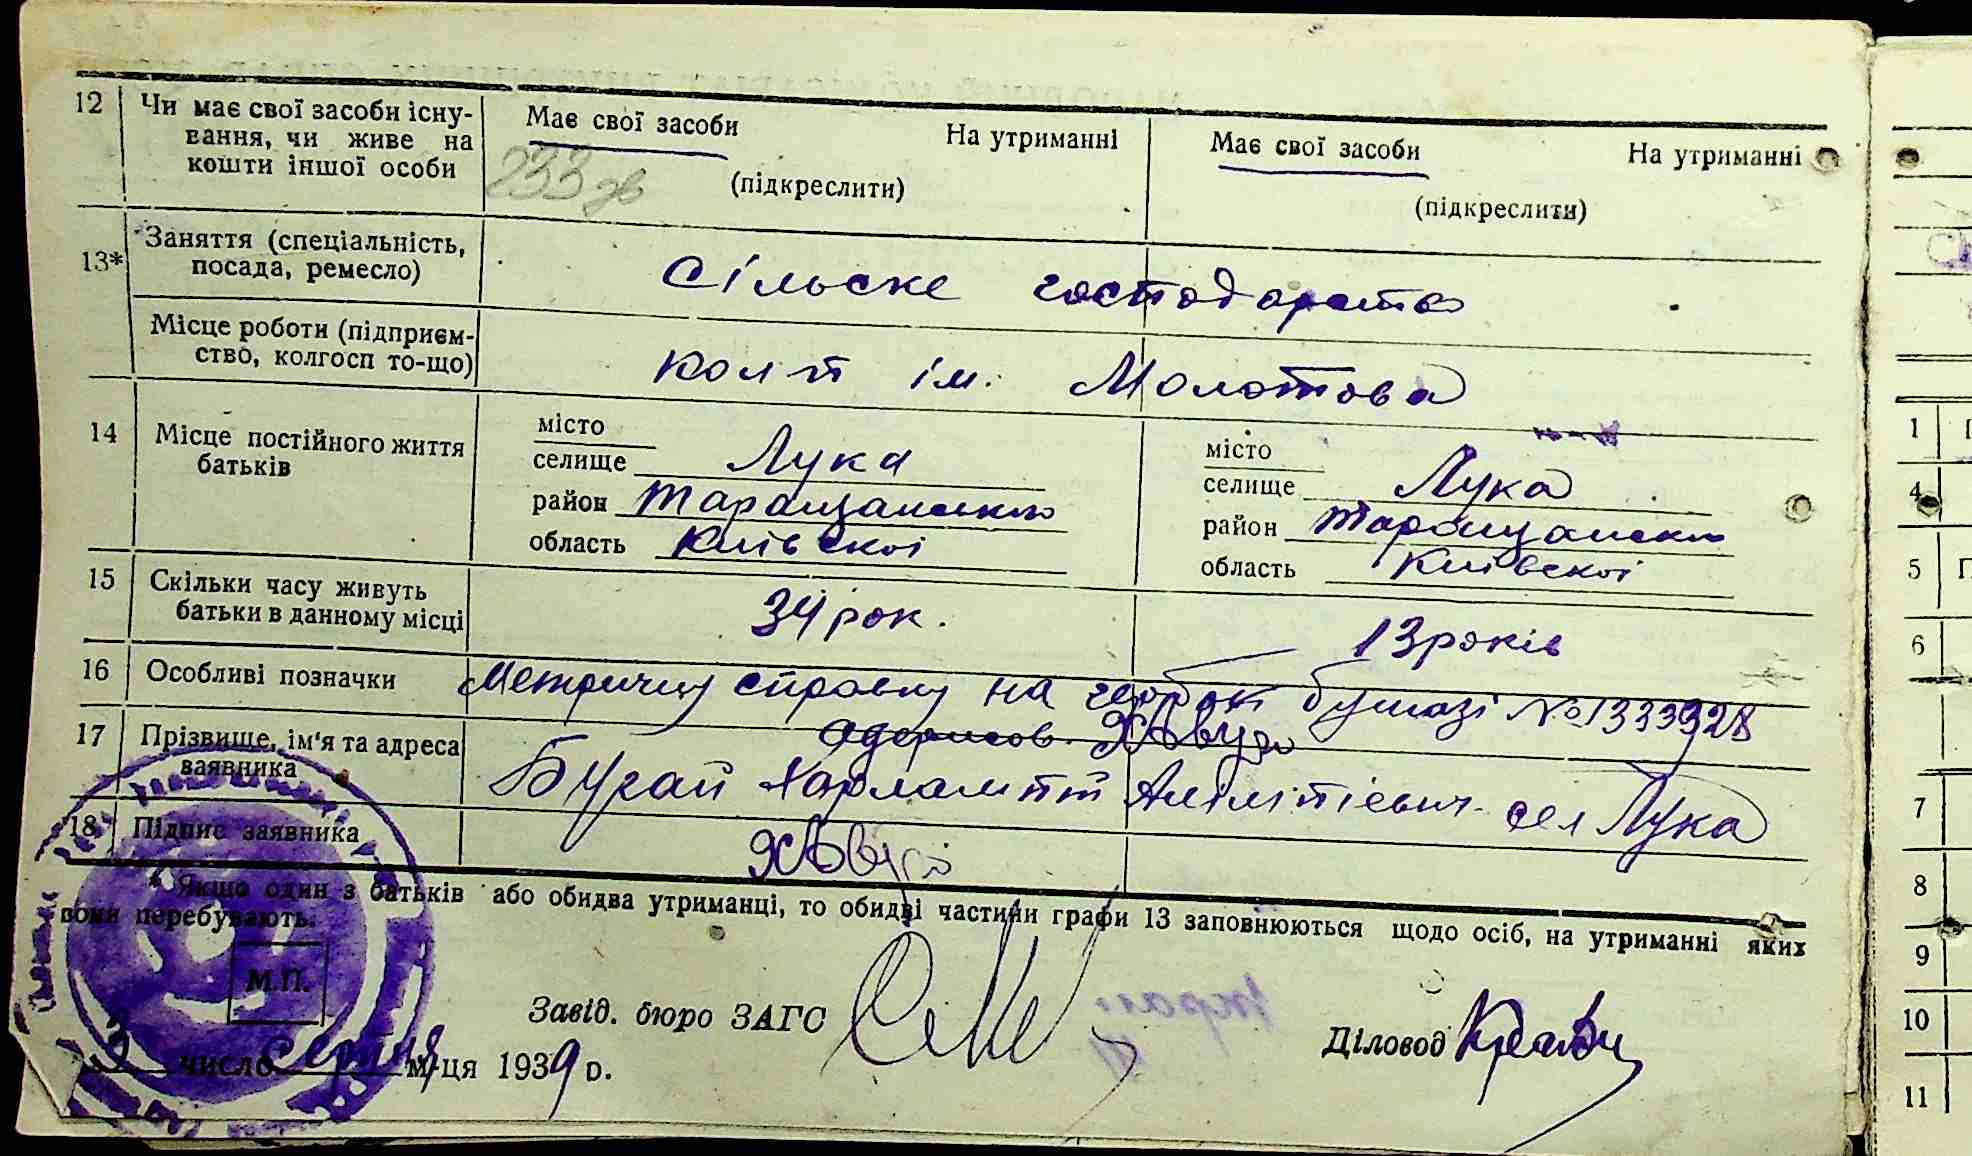 12 Чи має свої засоби існу-
вання, чи живе на
кошти іншої особи
Має свої засоби На утриманні
(підкреслити)
Має свої засоби На утриманні
(підкреслити)
233 зв
13* Заняття (спеціальність,
посада, ремесло)
Сільске господарство
Місце роботи (підприєм-
ство, колгосп то-що)
колгп ім. Молотова
14 Місце постійного життя
батьків
місто
селище Лука
район Таращанського
область Київскої
місто
селище Лука
район Таращанского
область Київскої
15 Скільки часу живуть
батьки в данному місці
34 рок. 13 років
16 Особливі позначки
Метричну справку на гербок бумазі № 1333928
одержов.
17 Прізвище, ім'я та адреса
заявника
Бугай Харлампій сел Лука
18 Підпис заявника
* Якщо один з батьків або обидва утриманці, то обидві частини графи 13 заповнюються щодо осіб, на утриманні яких
вони перебувають.
М.П.
Завід. бюро ЗАГС
Діловод
число серпня м-ця 1939 р.
1
4
5
6
7
8
9
10
11